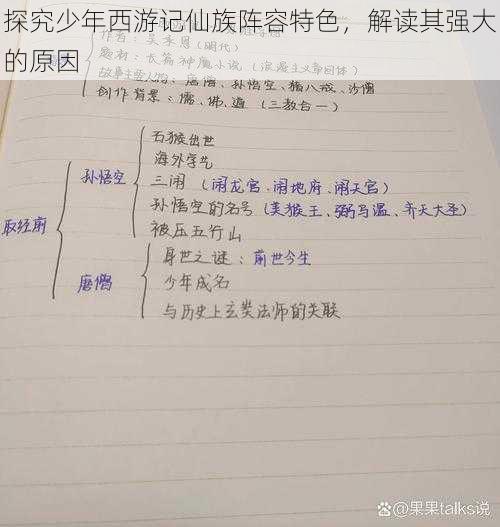 探究少年西游记仙族阵容特色，解读其强大
的原因
作者：吴承恩（明代）
题材：长篇神魔小说（浪漫主义章回体）
故事主要人物：唐僧、孙悟空、猪八戒、沙僧
创作背景：儒、佛、道（三教合一）
取经前
孙悟空
石猴出世
海外学艺
三闹（闹龙宫、闹地府、闹天宫）
孙悟空的名号（美猴王、弼马温、齐天大圣）
被压五行山
唐僧
身世之谜：前世今生
少年成名
与历史上玄奘法师的关联
果果talks说